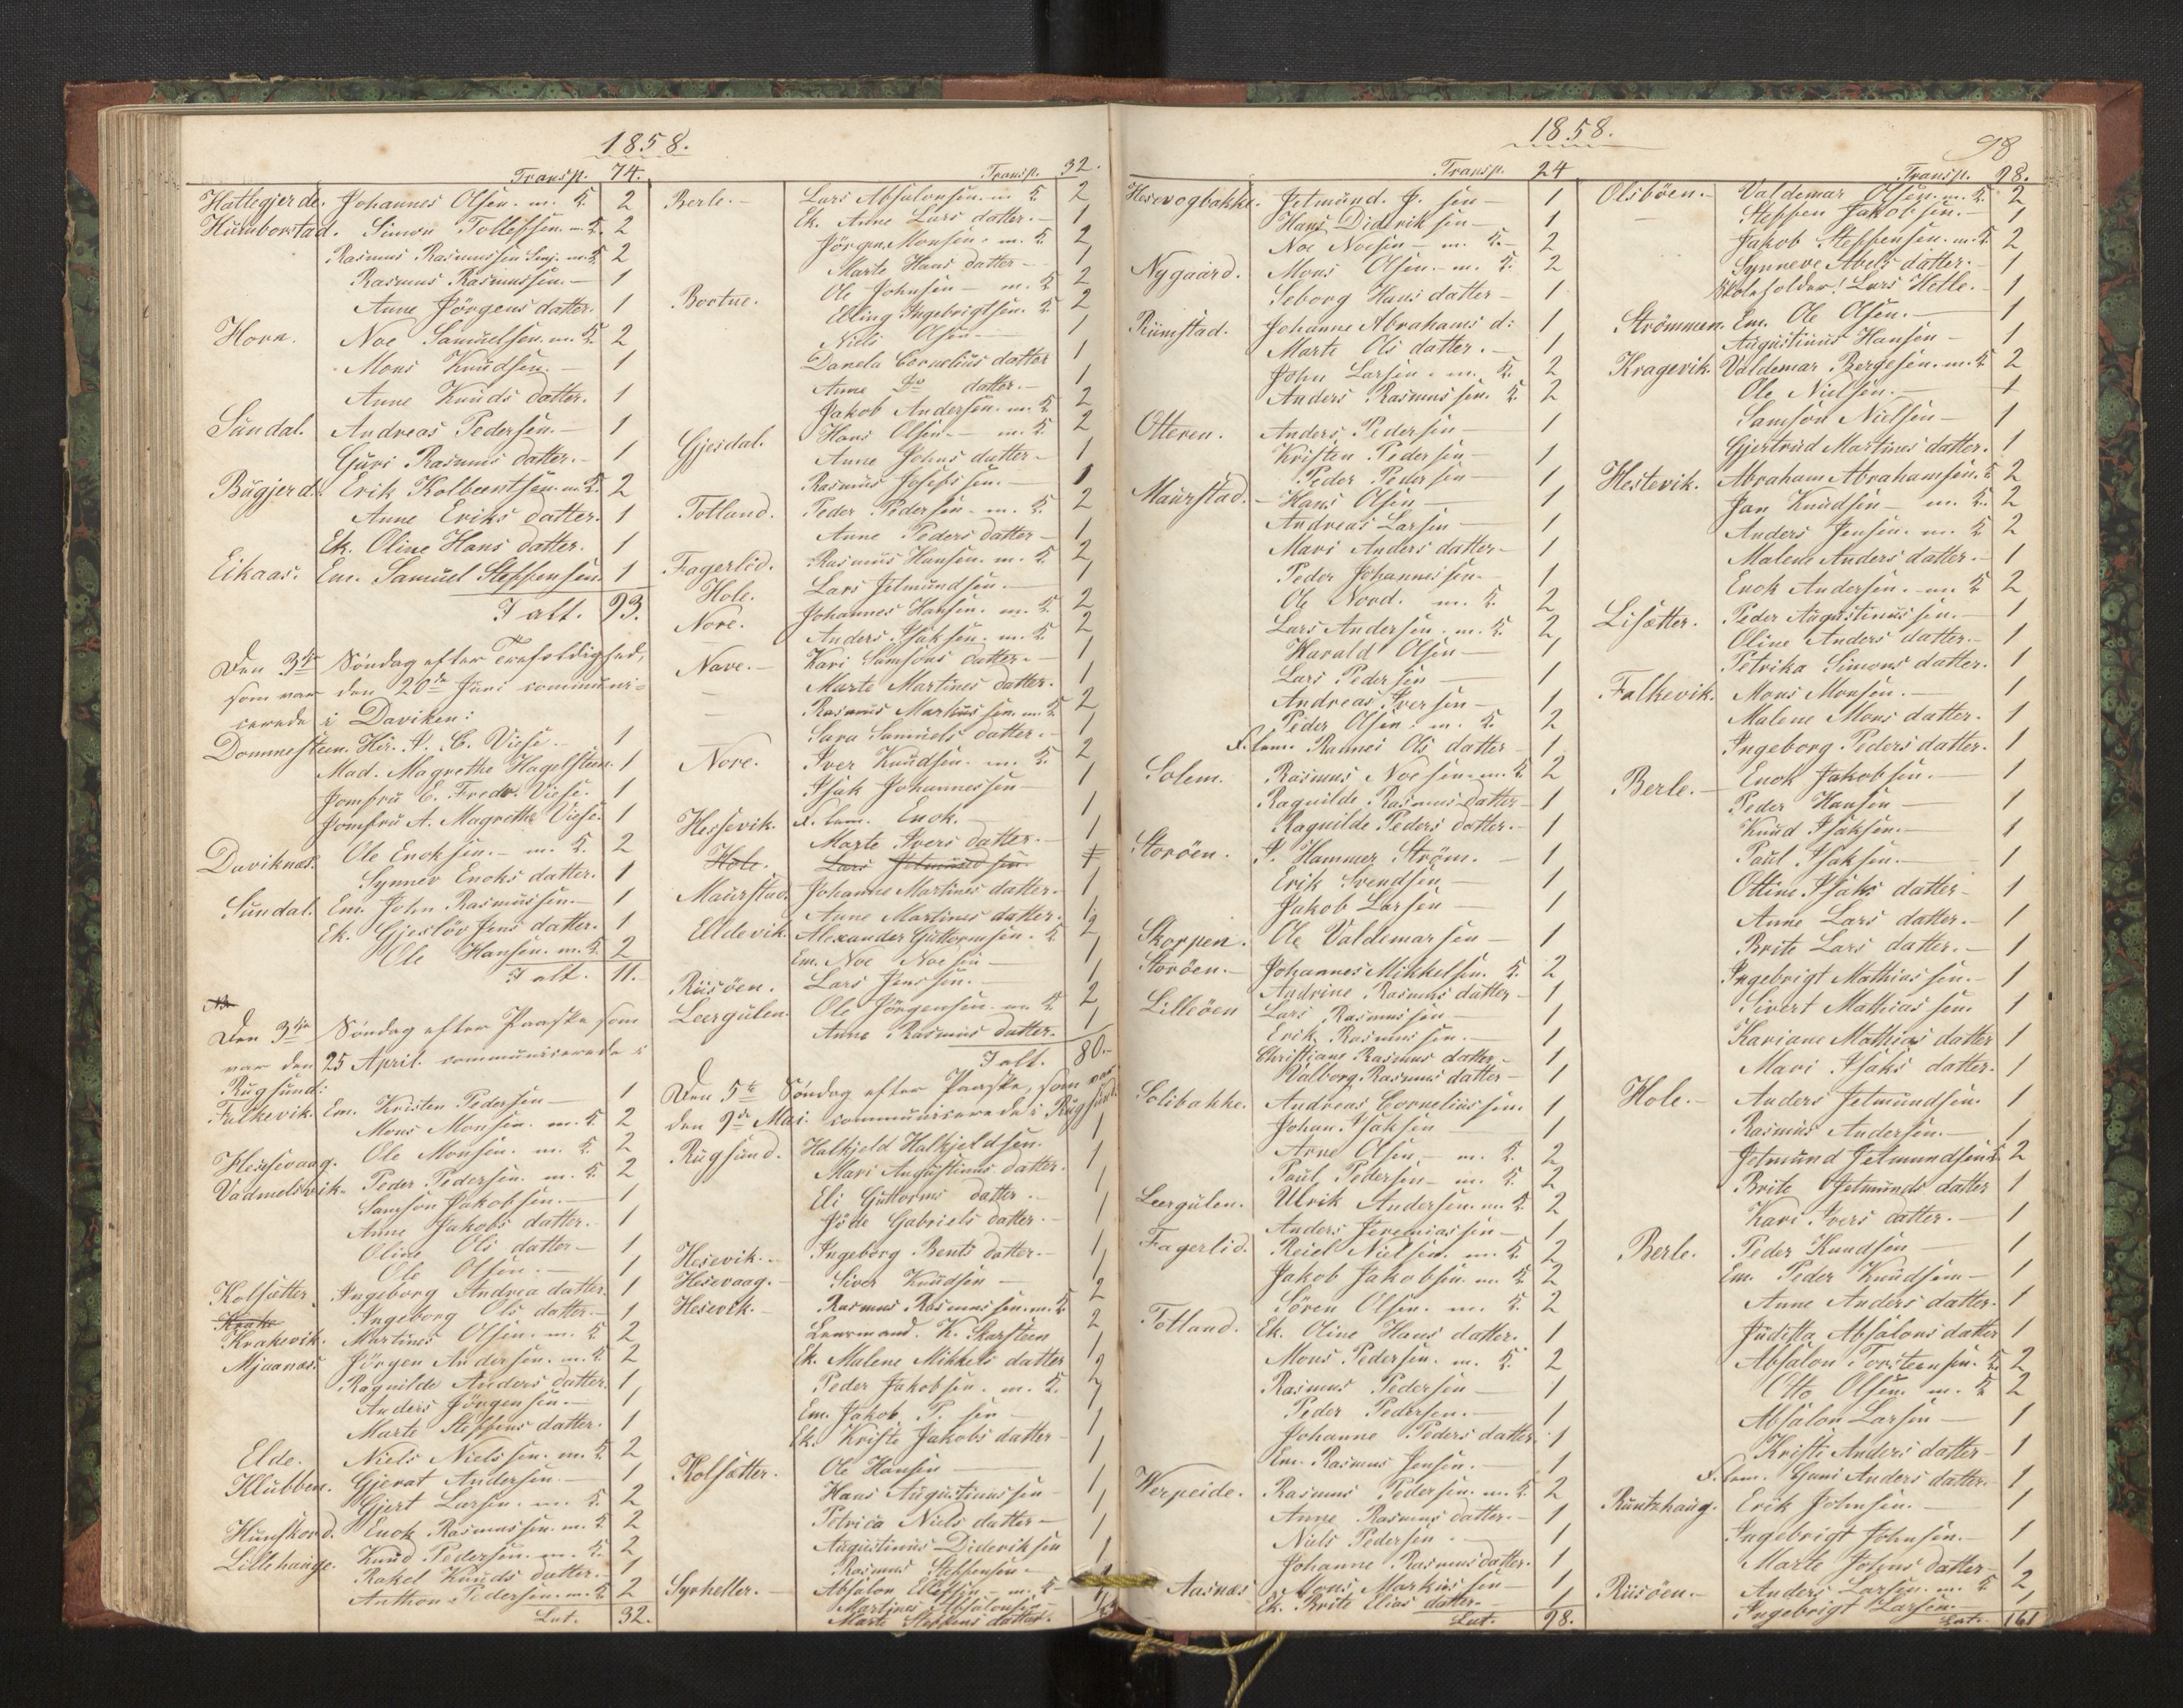 1858.
Transp. 74.
Hattegjerde. Johannes Olsen. m. K. 2
Humborstad. Simon Tollefsen. m. K. 2
Rasmus Rasmussen Senj. m. K. 2
Rasmus Rasmussen. — 1
Anne Jörgens datter. 1
Horn. Noe Samuelsen. m. K. 2
Mons Knudsen. — 1
Anne Knuds datter. 1
Sundal. Andreas Pedersen. — 1
Guri Rasmus datter. — 1
Bugjerd. Erik Kolbeentsen. m. K. 2
Anne Eriks datter. 1
Ek. Oline Hans datter. 1
Eikaas. Em. Samuel Steffensen 1
I alt. 93.
Den 3die Söndag efter Trefoldighed,
som var den 20de Juni communi=
cerede i Daviken:
Dommesteen. Hr. P. C. Viese. — 1
Mad. Magrethe Hagelsteen. 1
Jomfru E. Fredr. Viese. 1
Jomfru A. Magrethe Viese. 1
Daviknæs. Ole Enoksen. — m. K. 2
Synnev Enoks datter. 1
Sundal. Em. John Rasmussen. — 1
Ek. Gjeslöv Jens datter. 1
Ole Hansen. m. K. 2
I alt. 11.
Den 3die Söndag efter Paaske som
var den 25 April. communicerede i
Rugsund:
Falkevik. Em. Kristen Pedersen — 1
Mons Monsen. m. K. 2
Hessevaag. Ole Monsen. m. K. 2
Vadmelsvik. Peder Pedersen. m. K. 2
Samson Jakobsen. — 1
Anne Jakobs datter. 1
Oline Ols datter — 1
Ole Olsen. — 1
Kolsætter. Ingeborg Andrea datter 1
Krake Ingeborg Ols datter. — 1
Krakevik. Martines Olsen. m. K. 2
Mjaanæs. Jörgen Andersen. m. K. 2
Ragnilde Anders datter. 1
Anders Jörgensen. — 1
Marte Steffens datter. 1
Elde. Niels Nielssen. m. K. 2
Klubben. Gjerat Andersen. — 1
Gjert Larsen. m. K. 2
Hunskord. Enok Rasmussen. m. K. 2
Lillehauge. Knud Pedersen. m. K. 2
Rakel Knuds datter. — 1
Anthon Pedersen. m. K. 2
Lat. 32.
Transp. 32.
Berle. — Lars Absalonsen. m. K. 2
Ek. Anne Lars datter. — 1
Jörgen Monsen. m. K. 2
Marte Hans datter — 1
Ole Johnsen — m. K. 2
Bortne. Elling Ingebrigtsen. K. 2
Niels Olsen — 1
Danela Cornelius datter 1
Anne Do datter. — 1
Jakob Andersen. m. K. 2
Gjesdal. Hans Olsen — m. K. 2
Anne Johns datter — 1
Rasmus Josefssen. — 1
Totland. Peder Pedersen — m. K. 2
Anne Peders datter — 1
Fagerlid. Rasmus Hansen. m. K. 2
Hole. Lars Jetmundsen. — 1
Nore. Johannes Hansen. m. K. 2
Anders Isaksen. m. K. 2
Nave. — Kari Samsons datter. — 1
Marte Martines datter. 1
— Rasmus Markussen. m. K. 2
— Sara Samuels datter. — 1
Nore. Iver Knudsen. m. K. 2
Isak Johannessen — 1
Hessevik. F. lem. Enok. — 1
Marte Ivers datter. — 1
Hole. Lars Jetmundsen. 1
Maurstad. Johanne Martines datter. — 1
Anne Martines datter. 1
Eldevik. Alexander Guttormsen. K. 2
Em. Noe Noesen — 1
Risöen. Lars Jenssen. — 1
Leergulen. Ole Jörgensen. m. K. 2
Anne Rasmus datter. — 1
I alt. 80. —
Den 5te Söndag efter Paaske, som var
den 9de Mai. communicerede i Rugsund.
Rugsund. Halkjeld Halkjeldsen. 1
Mari Augustinus datter. 1
Eli Guttorms datter. — 1
Jöde Gabriels datter. — 1
Hesevik. — Ingeborg Bents datter. — 1
Hesevaag. — Siver Knudsen — 1
Hesevik. — Rasmus Rasmussen. m. K. 2
Leensmand. K. Skarsteen 2
Ek. Malene Mikkels datter 1
Peder Jakobsen. m. K. 2
Em. Jakob P. sen — 1
Ek. Kriste Jakobs datter — 1
Kolsætter. Ole Hansen — 1
Hans Augustinussen — 1
Petrica Niels datter — 1
Augustinus Dideriksen 1
Rasmus Steffensen — 1
Syrheller. — Absalon Ellefsen — m. K — 2
Martines Absalonsen — 1
Marte Steffens datter. 1
1858.
98
Transp. 24
Hesevogbakke. Jetmund. J. sen — 1
Hans Dideriksen — 1
Noe Noesen — m. K. — 2
Nygaard. Mons Olsen — m. K. 2
Seborg Hans datter — 1
Rumstad. Johanne Abrahams d: 1
Marte Ols datter. — 1
John Larsen. m. K. 2
Anders Rasmussen. K. 2
Otteren. Anders Pedersen — 1
Kristen Pedersen — 1
Peder Pedersen — 1
Maurstad. — Hans Olsen — 1
Andreas Larsen — 1
Mari Anders datter — 1
Peder Johannessen — 1
Ole Nord. m. K. 2
Lars Andersen. m. K. 2
Harald Olsen — 1
Lars Pedersen — 1
Andreas Iversen — 1
Peder Olsen. m. K. 2
F. lem. Rannei Ols datter — 1
Solem. Rasmus Noesen. m. K. 2
Ragnilde Rasmus datter — 1
Ragnilde Peders datter. — 1
Storöen. P. Hammer Ström. — 1
Erik Svendsen — 1
Jakob Larsen — 1
Skorpen. Ole Valdemarsen — 1
Storöen. — Johannes Mikkelsen. K. 2
Andrine Rasmus datter — 1
Lilleöen Lars Rasmussen — 1
Erik Rasmussen. — 1
Christiane Rasmus datter. — 1
Valborg Rasmus datter — 1
Solibakke. Andreas Corneliussen. 1
Johan Isaksen — 1
Arne Olsen — m. K. 2
Paul Pedersen — m. K. 2
Leergulen. Ulrik Andersen. m. K. 2
Anders Jeremiassen — 1
Fagerlid. Reiel Nielsen. m. K. 2
Jakob Jakobsen. m. K. 2
Sören Olsen. m. K. 2
Totland. Ek. Oline Hans datter. 1
Mons Pedersen. m. K. 2
Rasmus Pedersen — 1
Peder Pedersen. — 1
Johanne Peders datter. 1
Em. Rasmus Jensen. — 1
Verpeide. Rasmus Pedersen. m. K. 2
Anne Rasmus datter. — 1
Niels Pedersen. 1
Johanne Rasmus datter. 1
Aasnæs Mons Markussen — 1
Ek. Brite Elias datter. — 1
Lat. 98.
Transp. 98.
Olsböen. — Valdemar Olsen. m. K. 2
— Steffen Jakobsen. — 1
Jakob Steffensen. m. K. 2
Synneve Abels datter. — 1
Skoleholder! Lars Helle. — 1
Strömmen. Em. Ole Olsen. — 1
Augustinus Hansen — 1
Kragevik. Valdemar Bergesen. m. K 2
Ole Nielsen. — 1
Samson Nielsen — 1
Gjertrud Martines datter. 1
Hestevik. Abraham Abrahamsen. K 2
Jan Knudsen — m. K. 2
Anders Jensen. m. K 2
Malene Anders datter. — 1
Enok Andersen. m. K 2
Lisætter. Peder Augustinussen. — 1
Oline Anders datter. — 1
Petrika Simons datter. 1
Falkevik. Mons Monsen. — 1
Malene Mons datter. 1
Ingeborg Peders datter. 1
Berle. — Enok Jakobsen. — 1
Peder Hansen — 1
Knud Isaksen. — 1
Paul Isaksen. — 1
Ottine Isaks datter — 1
Anne Lars datter. — 1
Brite Lars datter. — 1
Ingebrigt Mathiassen. — 1
Sivert Mathiassen 1
Kariane Mathias datter 1
Mari Isaks datter. 1
Hole. — Anders Jetmundsen. 1
Rasmus Andersen. — 1
Jetmund Jetmundsen. K 2
Brite Jetmunds datter 1
Kari Ivers datter. — 1
Berle. Peder Knudsen — 1
Em. Peder Knudsen — 1
Anne Anders datter. 1
Juditta Absalons datter 1
Absalon Torsteensen. K. 2
Otto Olsen. m. K 2
Absalon Larsen — 1
Kristi Anders datter — 1
F. lem. Guni Anders datter. 1
Runtzhaug. Erik Johnsen. — 1
Ingebrigt Johnsen. — 1
Marte Johns datter — 1
Risöen. — Anders Larsen. m. K 2
Ingebrigt Larsen. — 1
Lat. 161